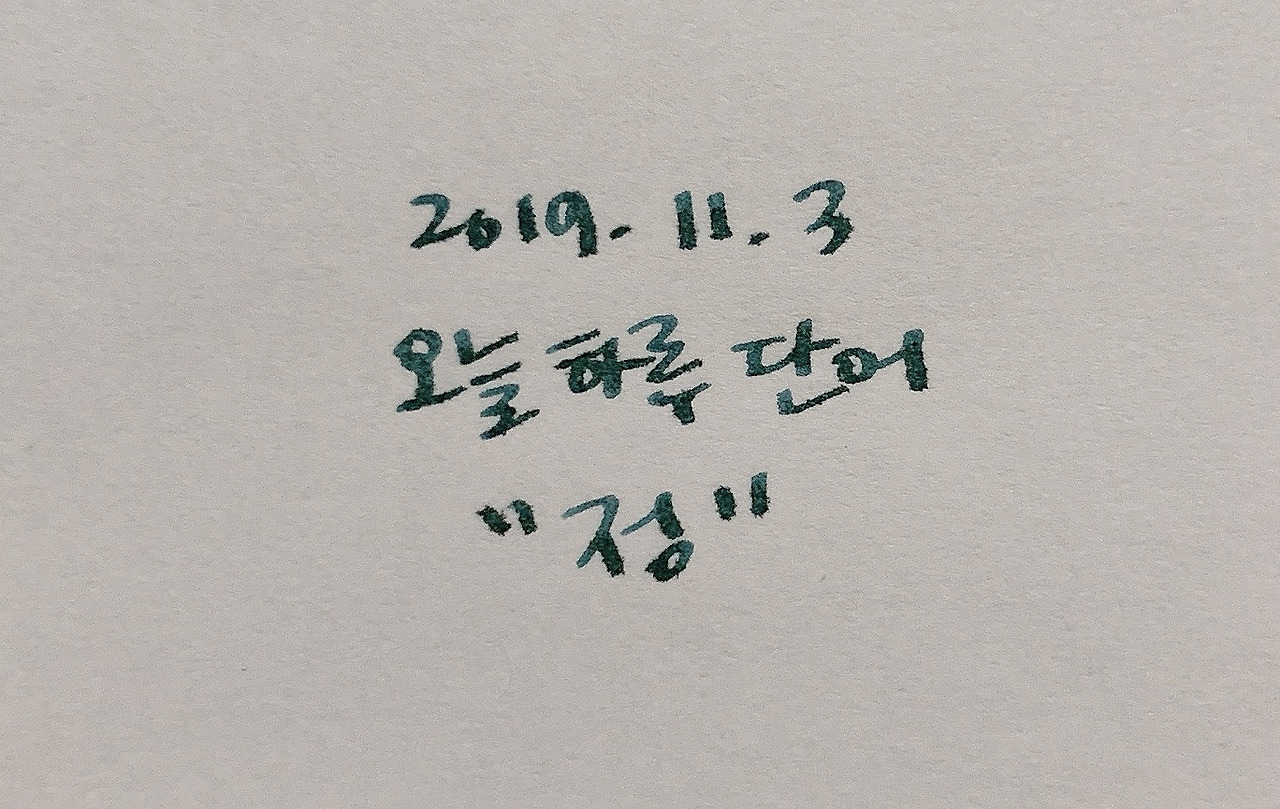 2019. 11. 3
오늘 하루 단어
"정"